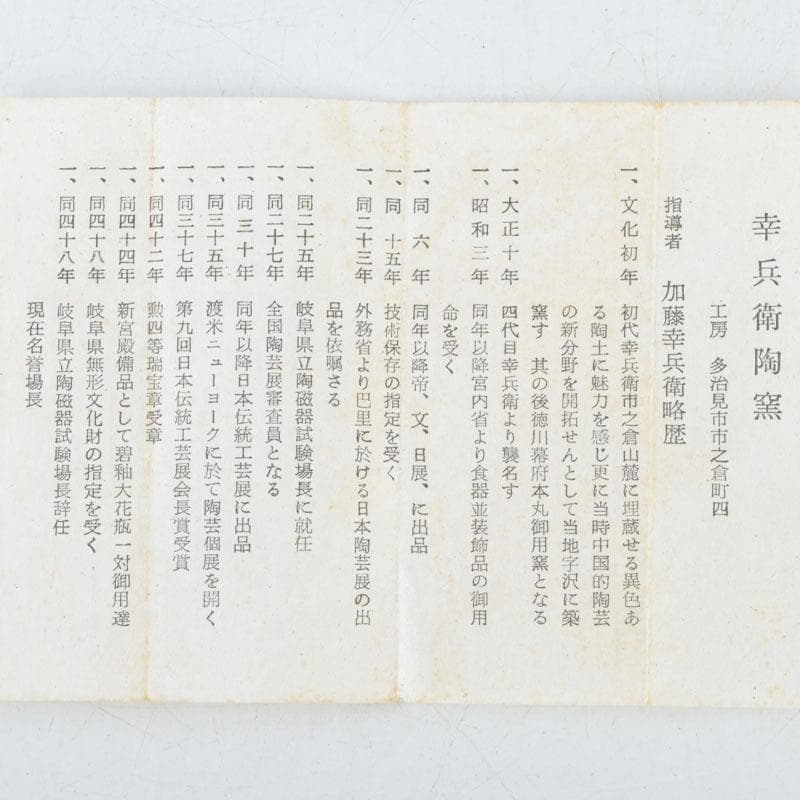 幸兵衛陶窯
工房　多治見市市之倉町四
指導者　加藤幸兵衛略歴
一、文化初年　初代幸兵衛市之倉山麓に埋蔵せる異色あ
る陶土に魅力を感じ更に当時中国的陶芸
の新分野を開拓せんとして当地字沢に築
窯す　其の後徳川幕府本丸御用窯となる
一、大正十年　四代目幸兵衛より襲名す
一、昭和三年　同年以降宮内省より食器並装飾品の御用
命を受く
一、同　六　年　同年以降帝、文、日展、に出品
一、同　十五年　技術保存の指定を受く
一、同二十三年　外務省より巴里に於ける日本陶芸展の出
品を依嘱さる
一、同二十五年　岐阜県立陶磁器試験場長に就任
一、同二十七年　全国陶芸展審査員となる
一、同　三十年　同年以降日本伝統工芸展に出品
一、同三十五年　渡米ニューヨークに於て陶芸個展を開く
一、同三十七年　第九回日本伝統工芸展会長賞受賞
一、同四十二年　勲四等瑞宝章受章
一、同四十四年　新宮殿備品として碧釉大花瓶一対御用達
一、同四十八年　岐阜県無形文化財の指定を受く
一、同四十八年　岐阜県立陶磁器試験場長辞任
現在名誉場長